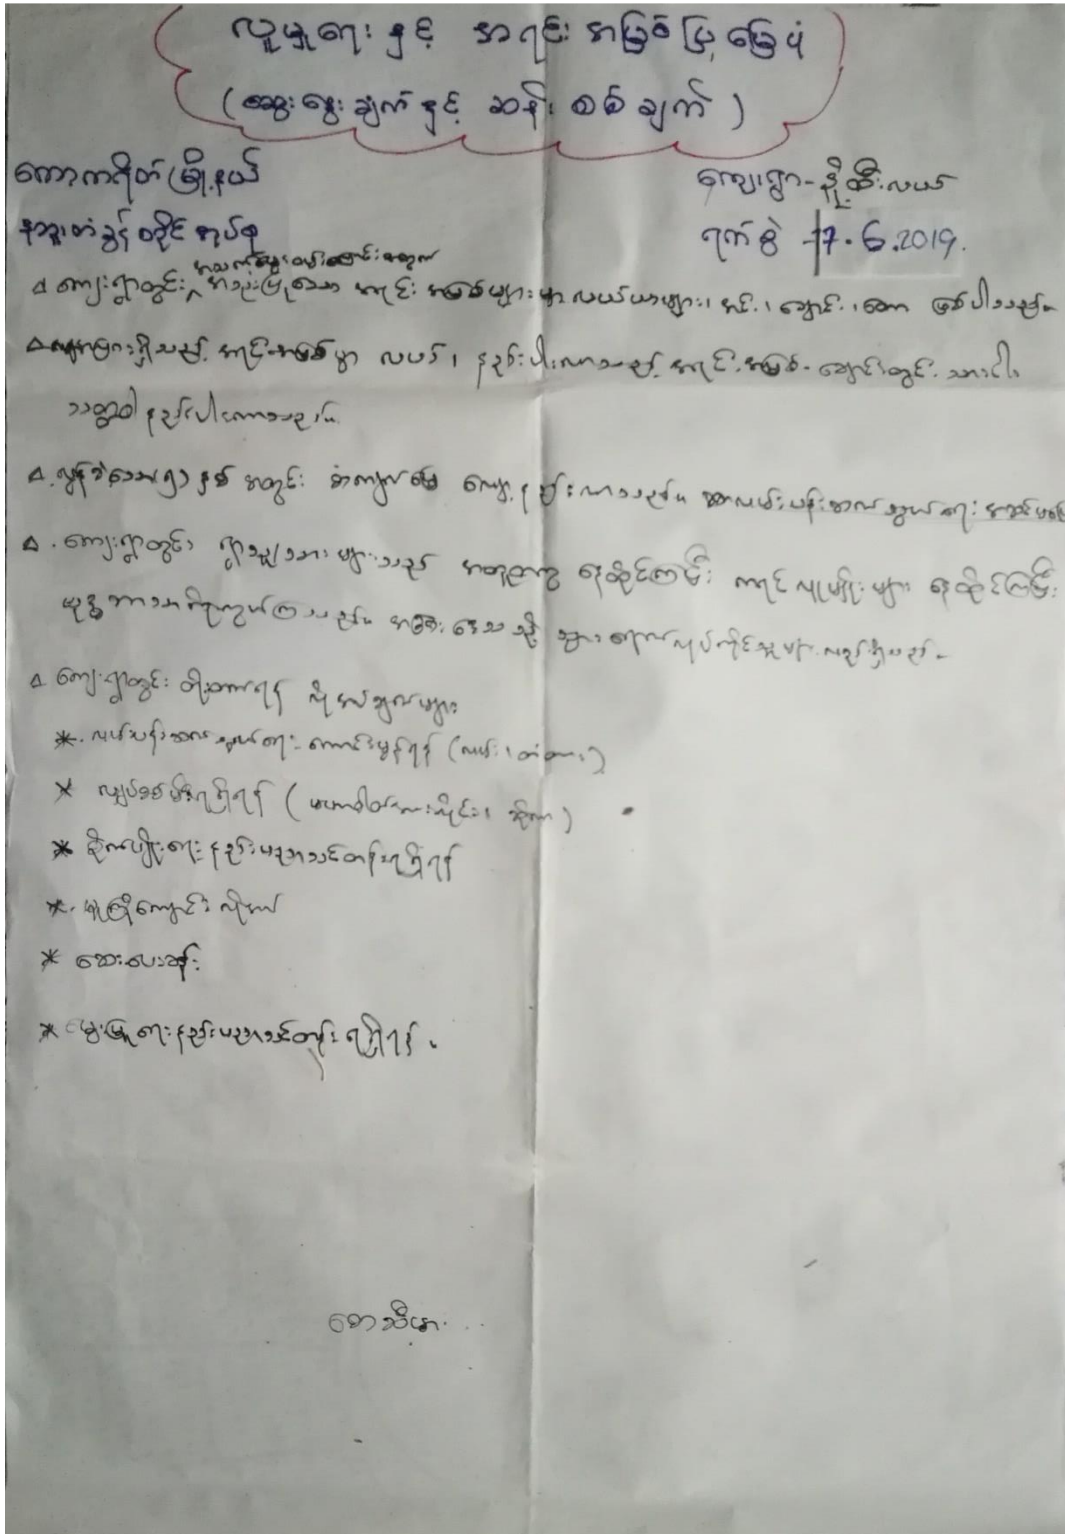 လူမှုရေး နှင့် အရင်းအမြစ်ပြ မြေပုံ
(ဆွေးနွေးချက်နှင့် ဆန်းစစ်ချက်)
ကော့ကရိတ်မြို့နယ်
ကျေးရွာ - နို့ထီးလယ်
ရက်စွဲ - 17.6.2019.
ကျေးရွာတွင်း အသုံးပြုသော အရင်းအမြစ်များမှာ လယ်ယာများ၊ အင်း၊ ချောင်း၊ တော ဖြစ်ပါသည်။
အရင်းအမြစ်မှာ လယ်၊ နည်းပါးလာသည့် အရင်းအမြစ် - ချောင်းတွင်း သားငါး
သတ္တဝါ နည်းပါးလာသည်။
နှစ် အတွင်း စံကျလမြေ လျော့နည်းလာသည်။ လမ်းပန်းဆက်သွယ်ရေး
ကျေးရွာတွင်း ရွာသူ/သားများသည် အတူတကွ နေထိုင်ကြပြီး ကရင်လူမျိုးများ နေထိုင်ကြပြီး
ဗုဒ္ဓဘာသာ ကိုးကွယ်ကြသည်။ အခြားဒေသသို့ သွားရောက်လုပ်ကိုင်သူများလည်းရှိသည်။
ကျေးရွာတွင်း တိုးတက်ရန် လိုအပ်ချက်များ
* လမ်းပန်းဆက်သွယ်ရေး ကောင်းမွန်ရန် (လမ်း၊ တံတား)
* လျှပ်စစ်မီးရရှိရန် (မဟာဓါတ်အားလိုင်း၊ ဆိုလာ)
* စိုက်ပျိုးရေးနည်းပညာသင်တန်းရရှိရန်
* မူကြိုကျောင်း လိုအပ်
* ဆေးပေးခန်း
* မွေးမြူရေးနည်းပညာသင်တန်း ရရှိရန်။